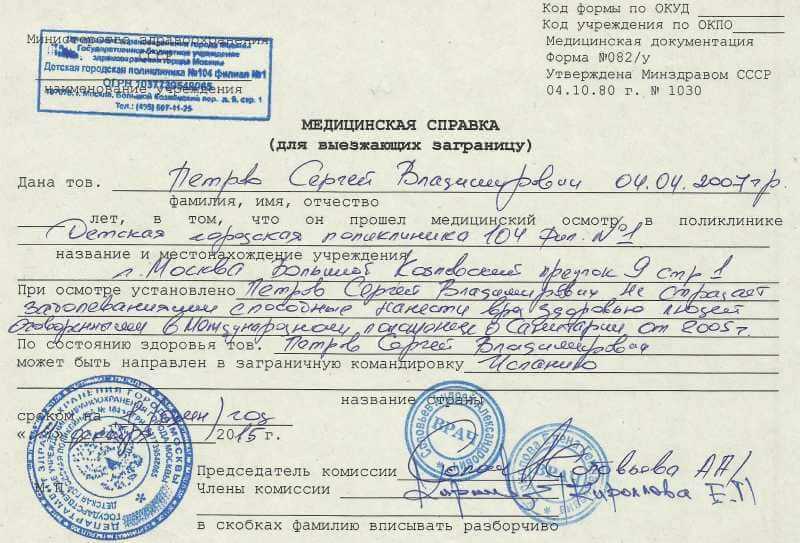 Код формы по ОКУД
Код учреждения по ОКПО
Медицинская документация
Форма №082/у
Утверждена Минздравом СССР
04.10.80 г. № 1030
Министерство здравоохранения
Государственное бюджетное учреждение
здравоохранения города Москвы
Детская городская поликлиника №104 филиал №1
ОГРН
наименование учреждения
г. Москва, Большой Козловский пер. д. 9, стр. 1
Тел.: (495) 607-11-25
МЕДИЦИНСКАЯ СПРАВКА
(для выезжающих заграницу)
Дана тов. Петров Сергей Владимирович 04.04.2007г.р.
фамилия, имя, отчество
лет, в том, что он прошел медицинский осмотр в поликлинике
Детская городская поликлиника 104 фил. №1
название и местонахождение учреждения
г. Москва Большой Козловский 9 стр 1
При осмотре установлено Петров Сергей Владимирович не страдает
заболеваниями способные нанести вред здоровью людей
оговоренными в Международном от 2005г.
По состоянию здоровья тов. Петров Сергей Владимирович
может быть направлен в заграничную командировку Испанию
название страны
сроком на 1 (один) год
2015 г.
М.П.
ВРАЧ
ВРАЧ
Председатель комиссии Соловьева А.А/
Члены комиссии Кириллова Е.П
в скобках фамилию вписывать разборчиво